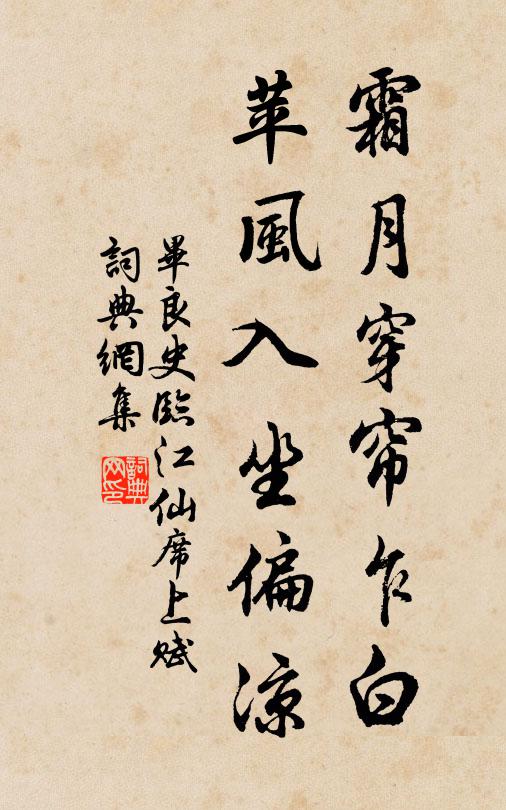 霜月穿帘乍白
苹風入坐偏涼
畢良史臨江仙席上賦
詞典網集
詞典网印